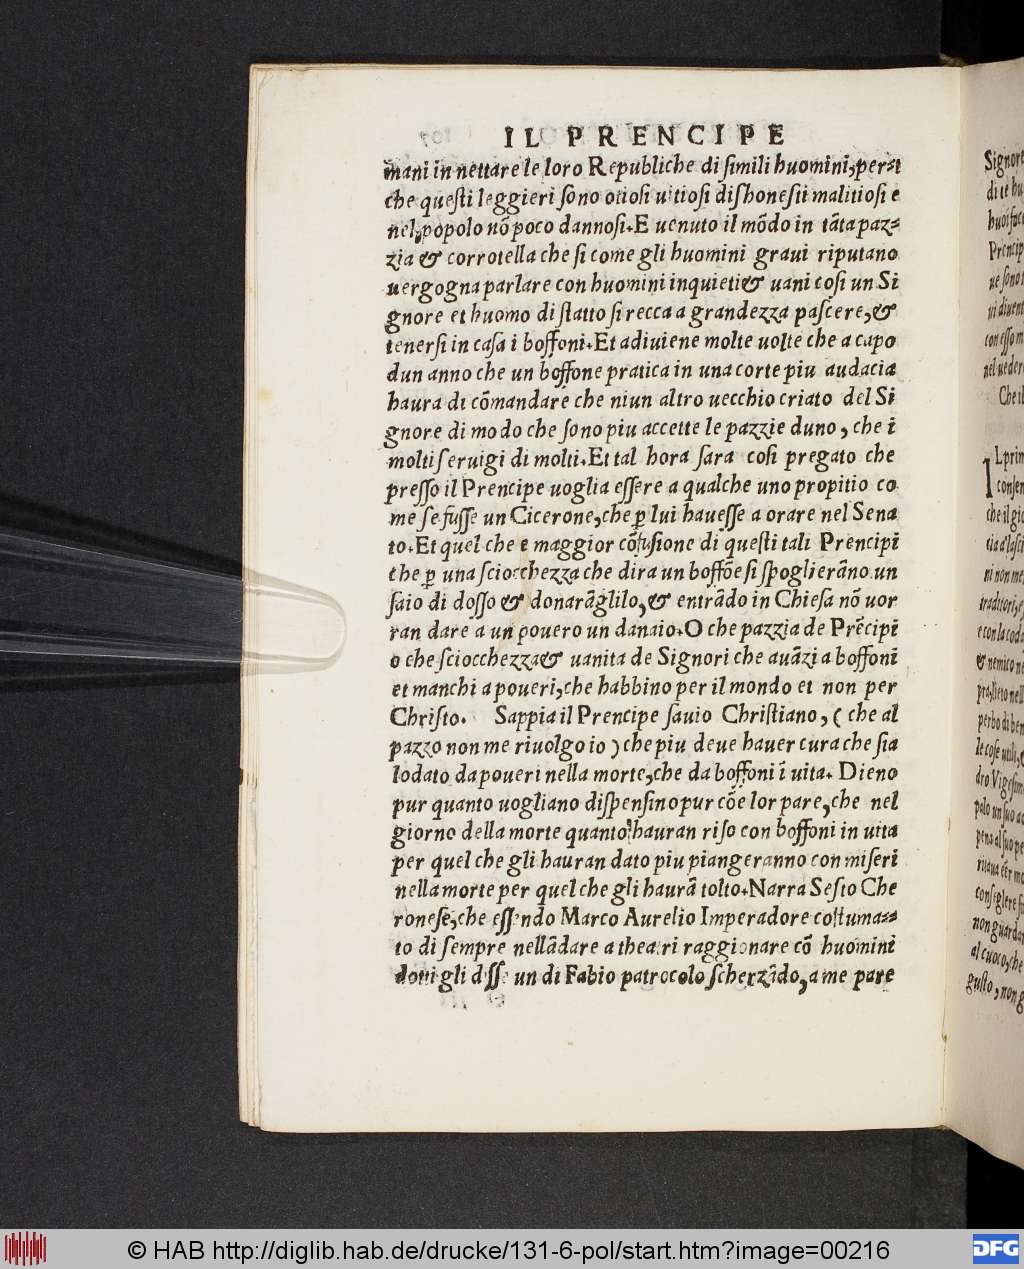 IL PRENCIPE
mani in nettare le loro Republiche di simili huomini, per=
che questi leggieri sono otiosi uitiosi dishonesti malitiosi e
nel popolo nõ poco dannosi. E uenuto il mõdo in tãta paz=
zia & corrotella che si come gli huomini graui riputano
uergogna parlare con huomini inquieti & uani cosi un Si
gnore et huomo di statto si recca a grandezza pascere, &
tenersi in casa i boffoni. Et adiuiene molte uolte che a capo
dun anno che un boffone pratica in una corte piu audacia
haura di cõmandare che niun altro uecchio criato del Si
gnore di modo che sono piu accette le pazzie duno, che i
molti seruigi di molti. Et tal hora sara cosi pregato che
presso il Prencipe uoglia essere a qualche uno propitio co
me se fusse un Cicerone, che ꝑ lui hauesse a orare nel Sena
to. Et quel che e maggior cõfusione di questi tali Prencipi
che ꝑ una sciocchezza che dira un boffõe si spoglierãno un
saio di dosso & donarãglilo, & entrãdo in Chiesa nõ uor
ran dare a un pouero un danaio. O che pazzia de Prẽcipi
o che sciocchezza & uanita de Signori che auãzi a boffoni
et manchi a poueri, che habbino per il mondo et non per
Christo. Sappia il Prencipe sauio Christiano, ( che al
pazzo non me riuolgo io ) che piu deue hauer cura che sia
lodato da poueri nella morte, che da boffoni ĩ uita. Dieno
pur quanto uogliano dispensino pur cõe lor pare, che nel
giorno della morte quanto hauran riso con boffoni in uita
per quel che gli hauran dato piu piangeranno con miseri
nella morte per quel che gli haurã tolto. Narra Sesto Che
ronese, che essendo Marco Aurelio Imperadore costuma=
to di sempre nellãdare a theatri raggionare cõ huomini
dotti gli disse un di Fabio patrocolo scherzãdo, a me pare
Signore
di te hu
Prencip
ue sono
con esso m
nel ueder
Che il
conser
che il gio
ni non me
traditori,
e con la coda
& nemico
perbo di ben
le cose utili,
dro Vigesim
polo un suo
pena al suo pe
non guardar
al cuoco, che
gusto, non g
© HAB http://diglib.hab.de/drucke/131-6-pol/start.htm?image=00216
DFG